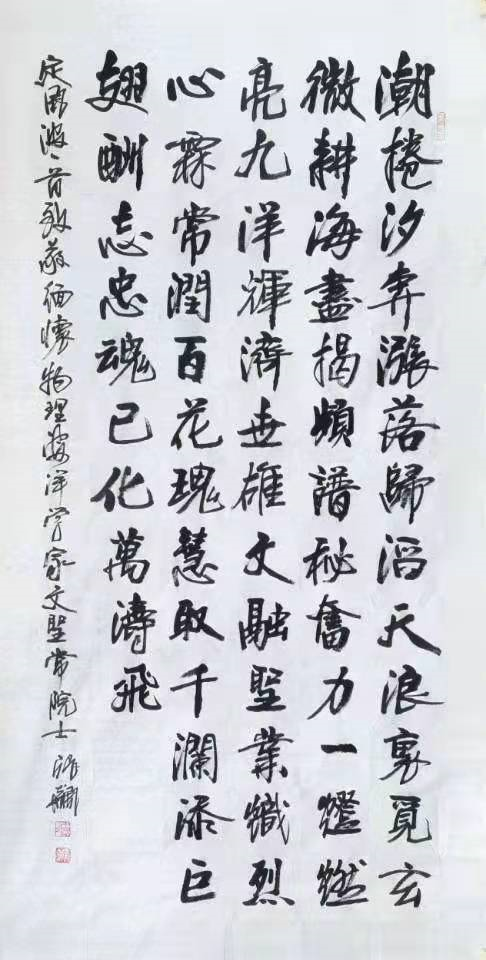 潮捲汐奔漲落歸滔天浪裏覓玄
微耕海盡揭頻譜秘奮力一燃
亮九洋輝濟世雄文融聖業熾烈
心霖常潤百花瑰慧取千瀾添巨
翅酬志忠魂已化萬濤飛
定風波一首致敬緬懷物理海洋学家文聖常院士